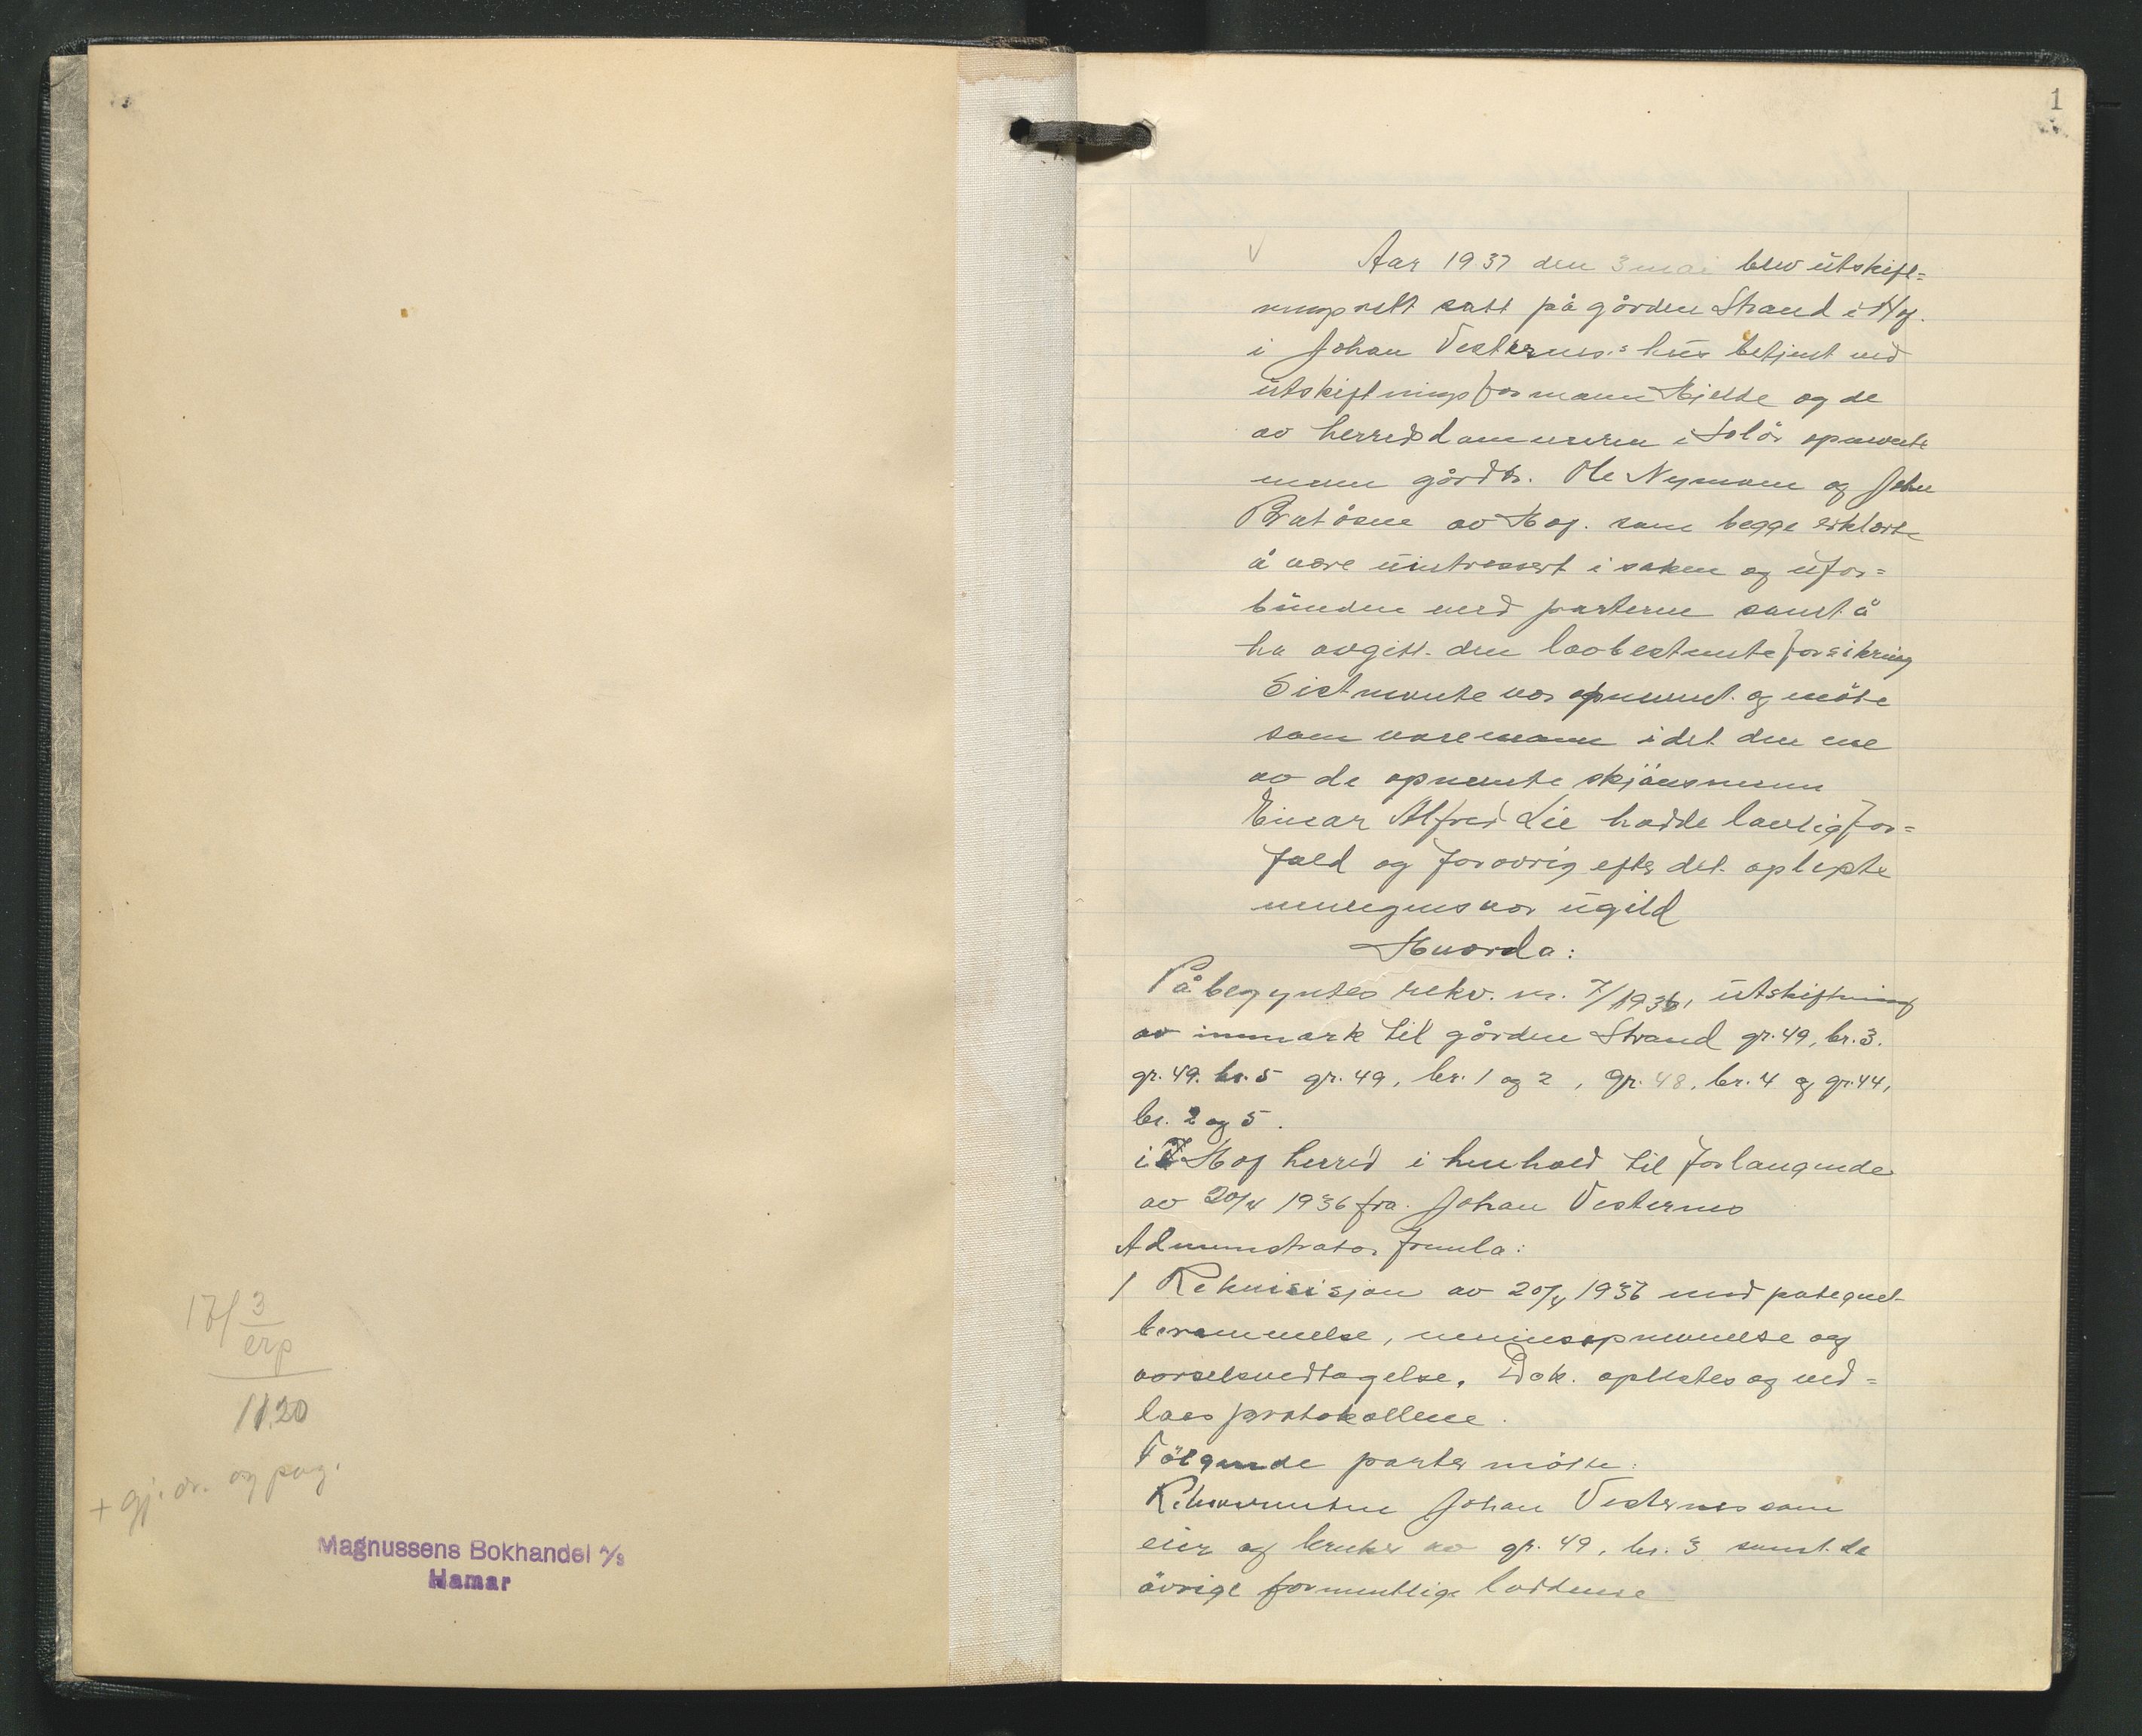 17/ 3
erp
11.20
+ gj. dr. og pag.
Magnussens Bokhandel A/S
Hamar
1
Aar 1937 den 3 mai blev utskift=
ningsrett satt på gården Strand i Hof
i Johan Vesternes's hus betjent ved
utskiftningsformann Hjelde og de
av herredsdommeren i Solør opnevnte
menn gårdbr. Ole Nymoen og John
Bratåsen av Hof. som begge erklærte
å være uintressert i saken og ufor=
bunden med parterne samt å
ha avgitt den lovbestemte forsikring
Sistnevnte var opnevnt og møtte
som varemann idet den ene
av de opnevnte skjønsmenn
Einar Alfred Lie hadde lovlig for=
fald og forøvrig efter det oplyste
ugild
Hvorda:
Påbegyntes rekv. nr. 7/1936, utskiftning
av innmark til gården Strand gr. 49, br. 3.
gr. 49. br. 5 gr. 49, br. 1 og 2, gr. 48, br. 4 og gr. 44,
br. 2 og 5.
i Hof herred i henhold til forlangende
av 20/4 1936 fra Johan Vesternes
Administrator fremla:
1 Rekvisisjon av 20/4 1936 med pategnet
berammelse, opnevnelse og
varselsvedtagelse. Dok. oplestes og ved=
laes protokollene.
Følgende parter møtte:
Rekvirenten Johan Vesternes som
eier og bruker av gr. 49, br. 3 samt de
øvrige formentlige loddeiere